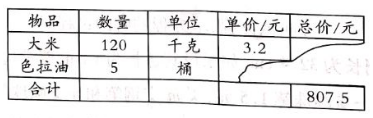 物品 数量 单位 单价/元 总价/元
大米 120 千克 3.2
色拉油 5 桶
合计 807.5